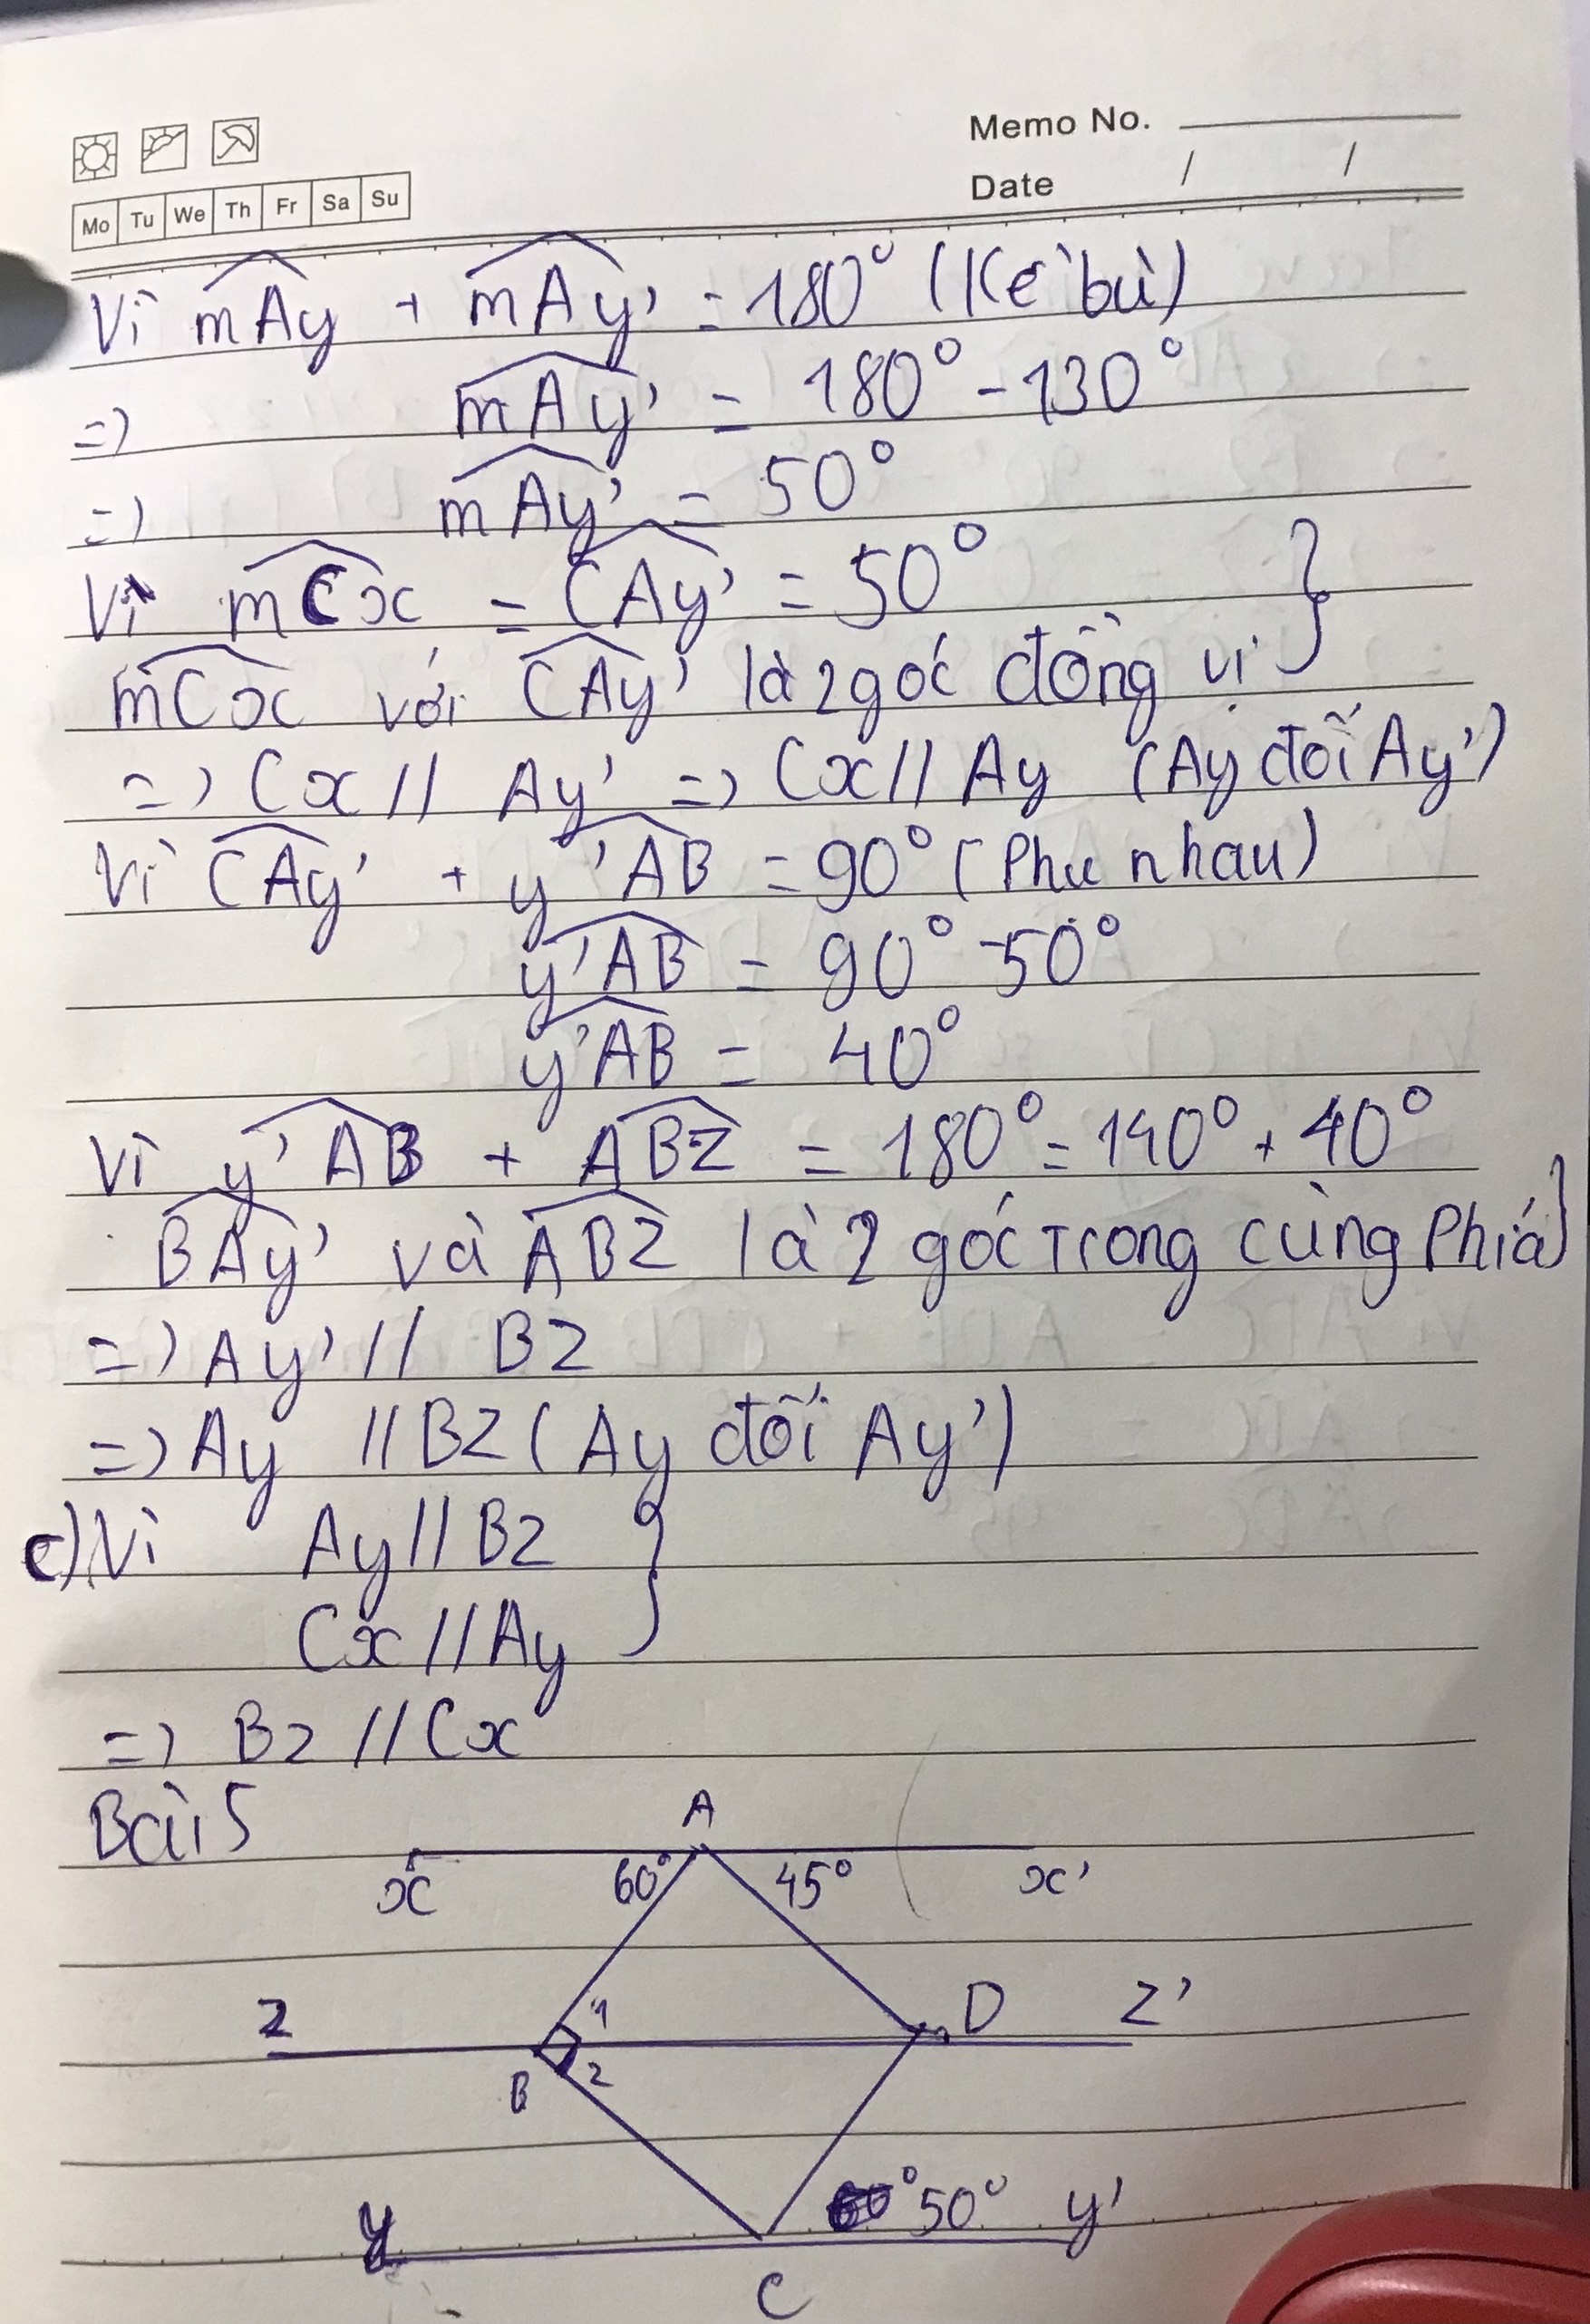 Memo No.
Date / /
Mo Tu We Th Fr Sa Su
Vì mAy + mAy' = 180° (Kề bù)
=> mAy' = 180° - 130°
=> mAy' = 50°
Vì mCx = CAy' = 50°
mCx với CAy' là 2 góc đồng vị }
=> Cx // Ay' => Cx // Ay (Ay đối Ay')
Vì CAy' + y'AB = 90° (Phụ nhau)
y'AB = 90° - 50°
y'AB = 40°
Vì y'AB + ABZ = 180° = 140° + 40°
BAy' và ABZ là 2 góc Trong cùng Phía }
=> Ay' // BZ
=> Ay // BZ (Ay đối Ay')
c) Vì Ay // BZ
Cx // Ay }
=> BZ // Cx
Bài 5
A
x 60° 45° x'
Z 1 D Z'
B 2
y 50° y'
C